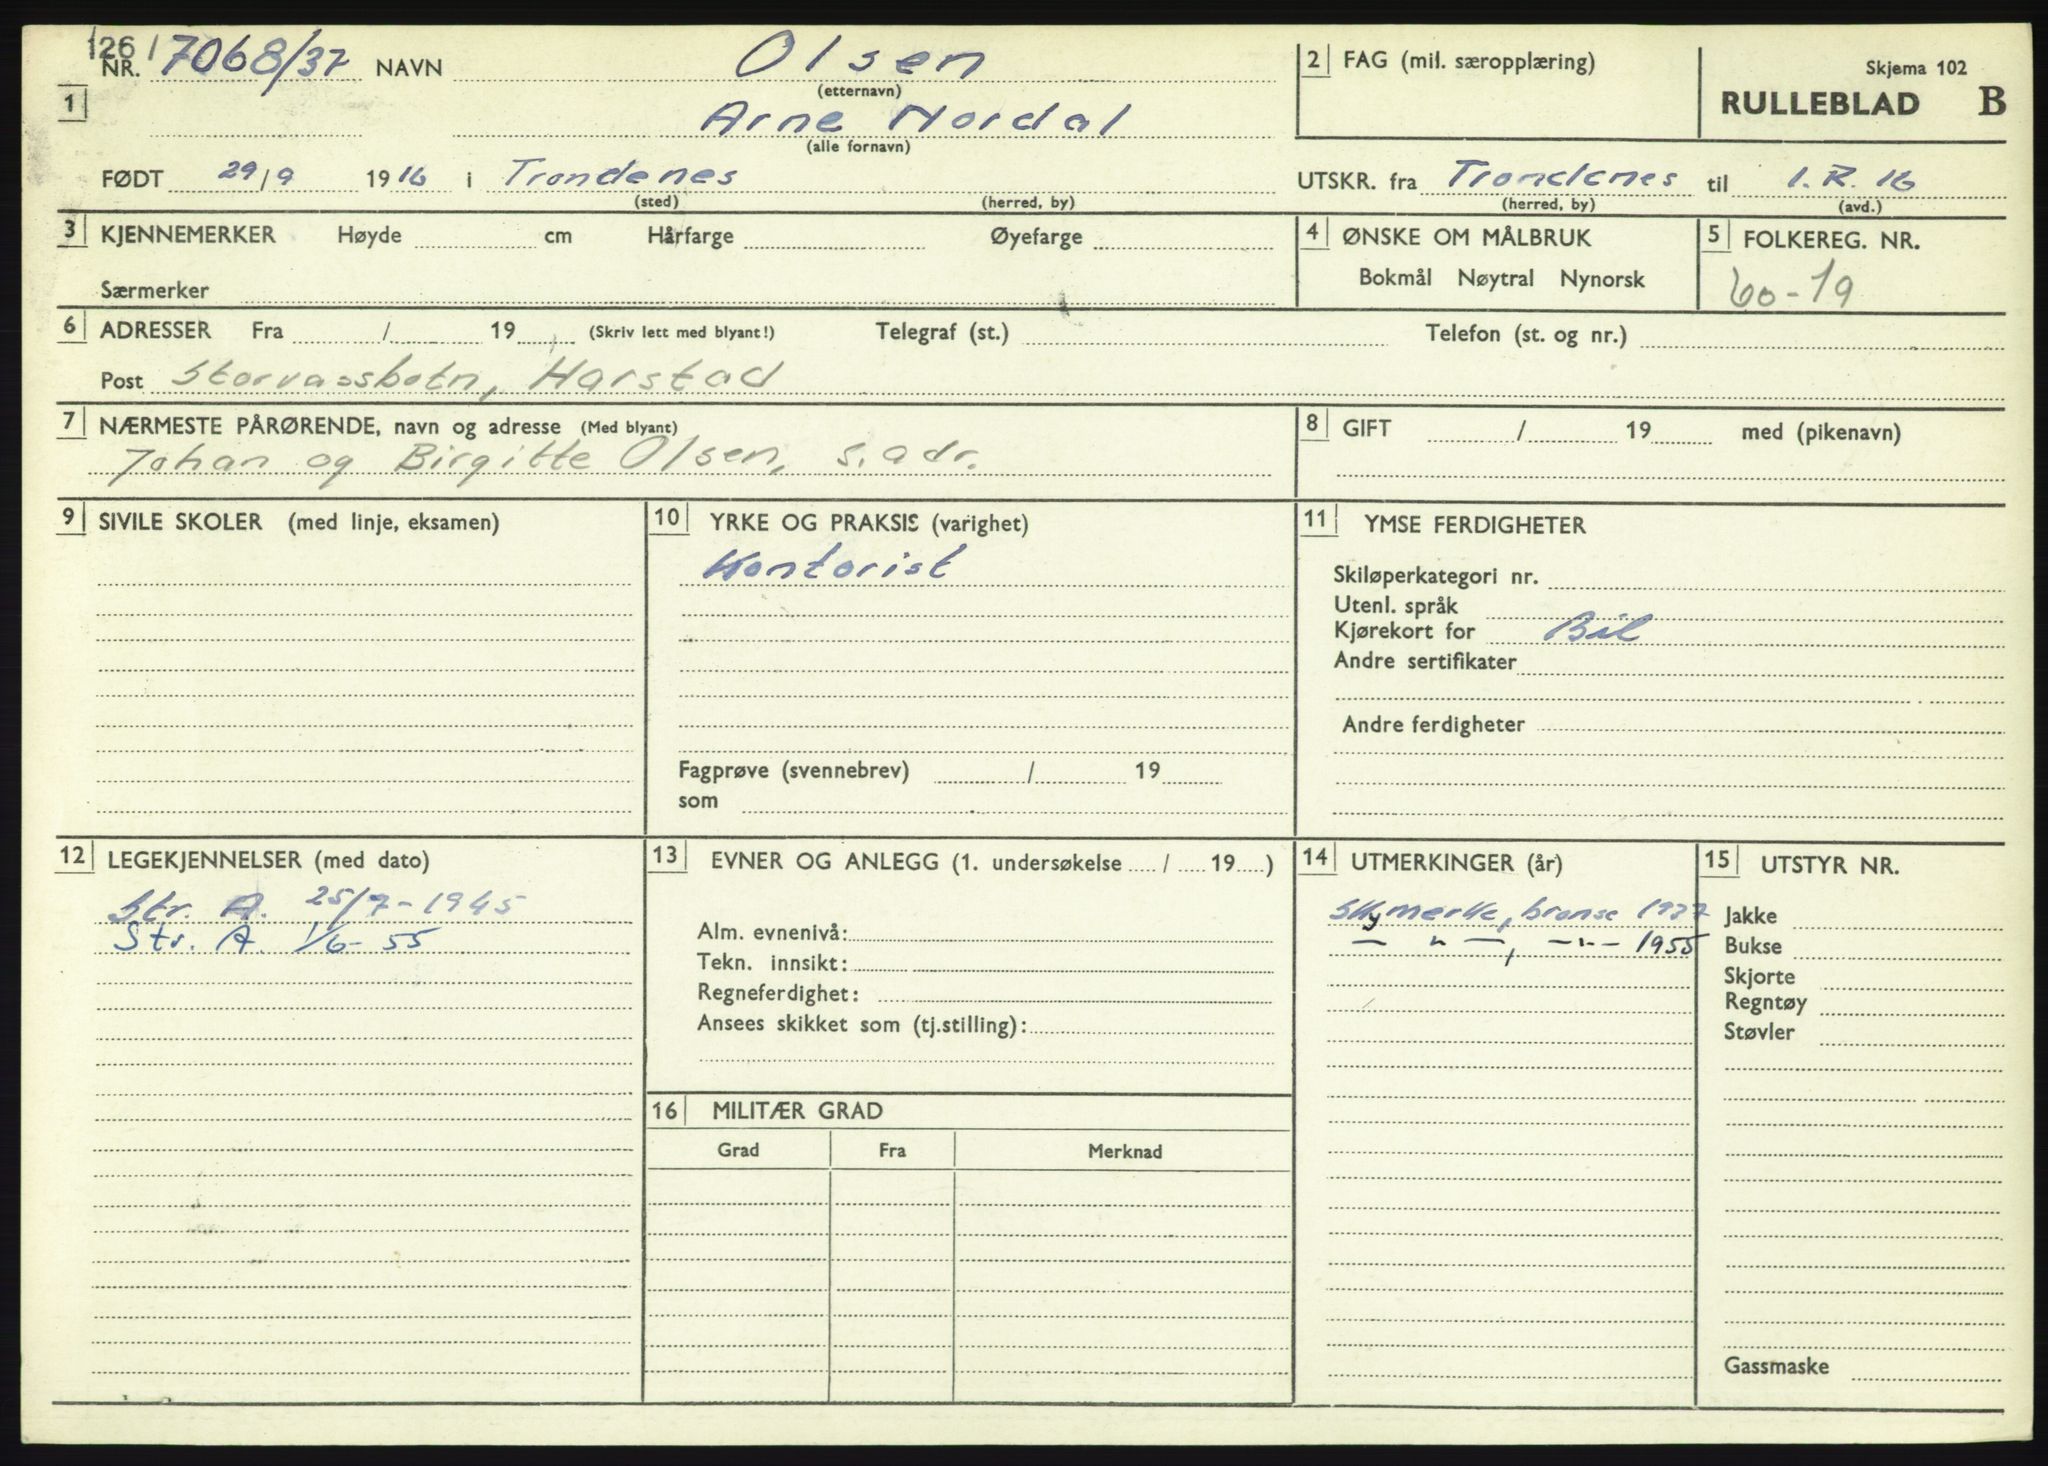 126/
NR. 7068/37 NAVN Olsen
(etternavn)
1
Arne Nordal
(alle fornavn)
FØDT 29/9 1916 i Trondenes
(sted) (herred, by)
2 FAG (mil. særopplæring)
Skjema 102
RULLEBLAD B
UTSKR. fra Trondenes til I.R. 16
(herred, by) (avd.)
3 KJENNEMERKER Høyde cm Hårfarge Øyefarge
Særmerker
4 ØNSKE OM MÅLBRUK
Bokmål Nøytral Nynorsk
5 FOLKEREG. NR.
60-19
6 ADRESSER Fra / 19 (Skriv lett med blyant!) Telegraf (st.) Telefon (st. og nr.)
Post Storvassbotn, Harstad
7 NÆRMESTE PÅRØRENDE, navn og adresse (Med blyant)
Johan og Birgitte Olsen, s. adr.
8 GIFT / 19 med (pikenavn)
9 SIVILE SKOLER (med linje, eksamen)
10 YRKE OG PRAKSIS (varighet)
Kontorist
Fagprøve (svennebrev) / 19
som
11 YMSE FERDIGHETER
Skiløperkategori nr.
Utenl. språk
Kjørekort for Bil
Andre sertifikater
Andre ferdigheter
12 LEGEKJENNELSER (med dato)
Str. A. 25/7-1945
Str. A. 1/6-55
13 EVNER OG ANLEGG (1. undersøkelse / 19 )
Alm. evnenivå:
Tekn. innsikt:
Regneferdighet:
Ansees skikket som (tj.stilling):
16 MILITÆR GRAD
Grad Fra Merknad
14 UTMERKINGER (år)
Skymerke, bronse 1937
— " —, —"— 1955
15 UTSTYR NR.
Jakke
Bukse
Skjorte
Regntøy
Støvler
Gassmaske